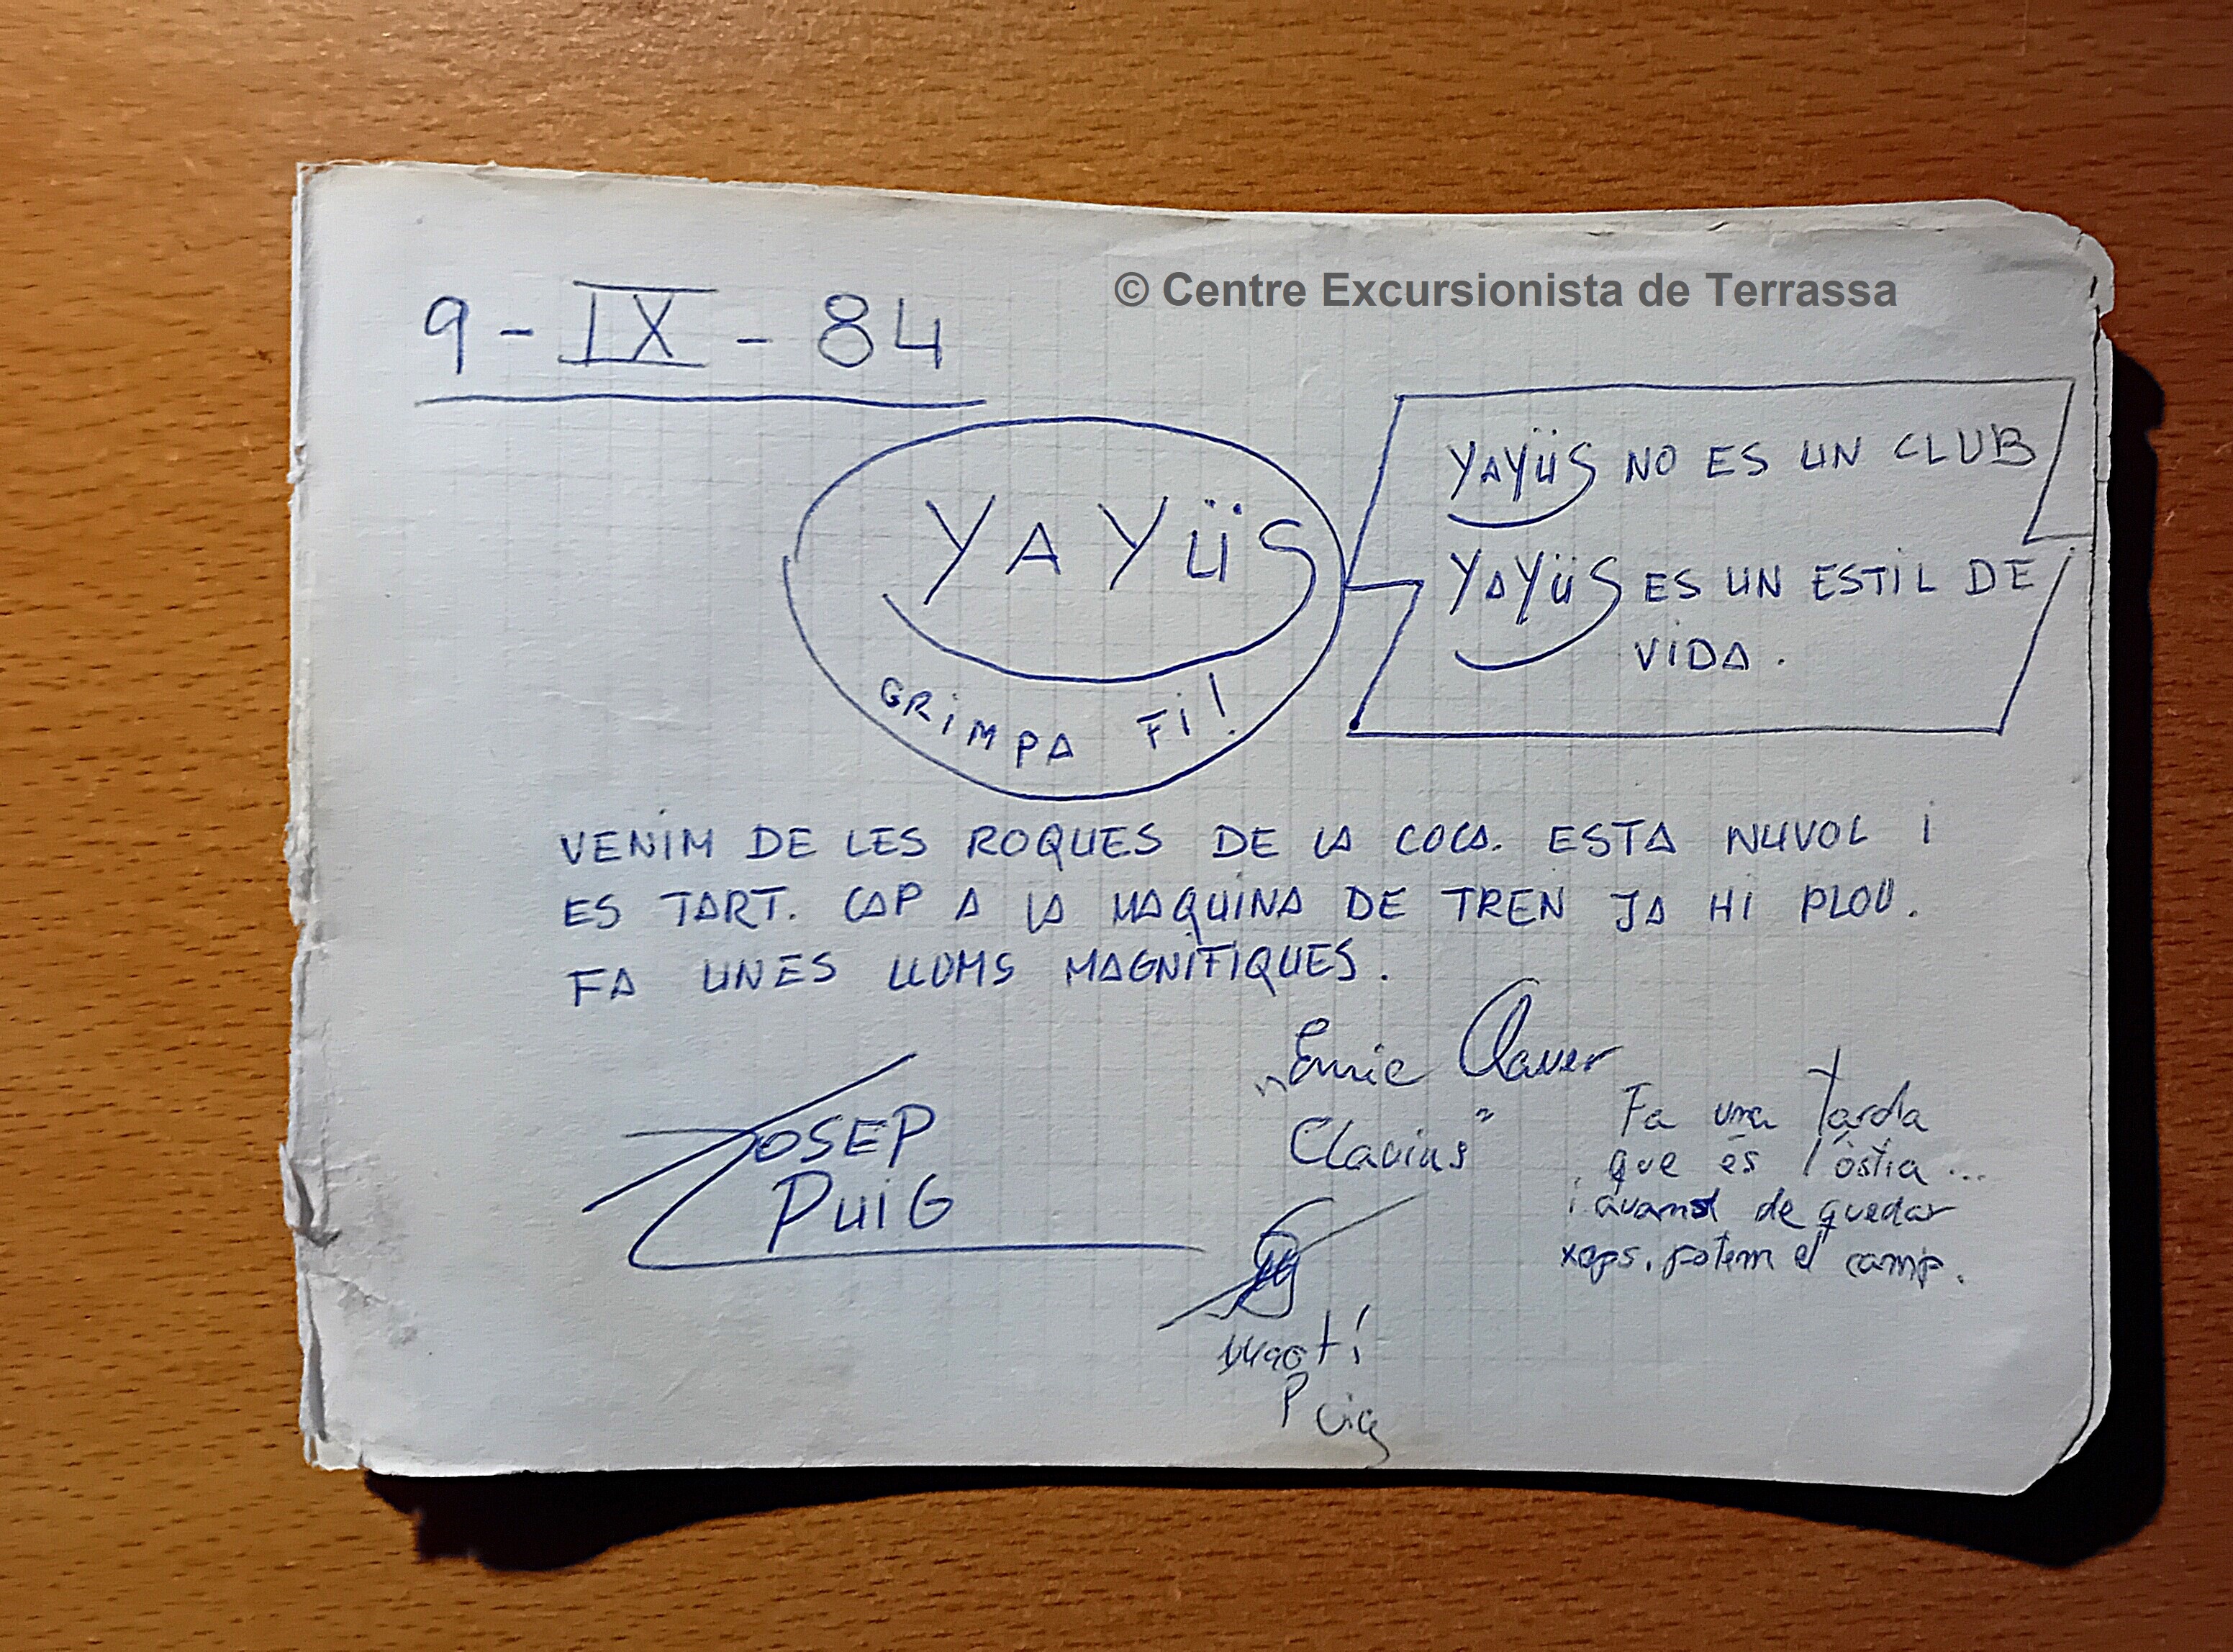 © Centre Excursionista de Terrassa
9 - IX - 84
YAYÜS
GRIMPA FI!
YAYÜS NO ES UN CLUB
YAYÜS ES UN ESTIL DE
VIDA.
VENIM DE LES ROQUES DE LA COCA. ESTA NUVOL I
ES TART. CAP A LA MAQUINA DE TREN JA HI PLOU.
FA UNES LLUMS MAGNIFIQUES.
JOSEP
PUIG
"Enric Claver
Clavius"
Fa una tarda
que és l'òstia...
i avans de quedar
xops, fotem el camp.
Martí
Puig